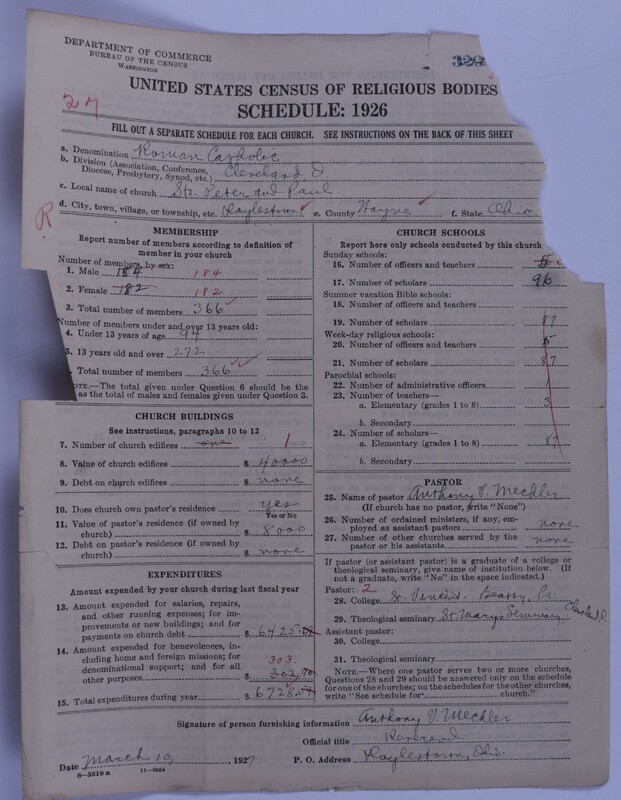 DEPARTMENT OF COMMERCE
BUREAU OF THE CENSUS
WASHINGTON
UNITED STATES CENSUS OF RELIGIOUS BODIES
SCHEDULE: 1926
27
FILL OUT A SEPARATE SCHEDULE FOR EACH CHURCH. SEE INSTRUCTIONS ON THE BACK OF THIS SHEET
a. Denomination Roman Catholic
b. Division (Association, Conference, Diocese, Presbytery, Synod, etc.) Cleveland, O.
c. Local name of church Sts. Peter and Paul
d. City, town, village, or township, etc. Doylestown e. County Wayne f. State Ohio
R
MEMBERSHIP
Report number of members according to definition of
member in your church
Number of members, by sex:
1. Male 184 184
2. Female 182 182
3. Total number of members 366
Number of members under and over 13 years old:
4. Under 13 years of age 94
5. 13 years old and over 272
Total number of members 366
NOTE.—The total given under Question 6 should be the
as the total of males and females given under Question 3.
CHURCH BUILDINGS
See instructions, paragraphs 10 to 12
7. Number of church edifices one 1
8. Value of church edifices $ 40000
9. Debt on church edifices $ none
10. Does church own pastor's residence yes
Yes or No
11. Value of pastor's residence (if owned by
church) $ 8000
12. Debt on pastor's residence (if owned by
church) $ none
EXPENDITURES
Amount expended by your church during last fiscal year
13. Amount expended for salaries, repairs,
and other running expenses; for im-
provements or new buildings; and for
payments on church debt $ 6425.
14. Amount expended for benevolences, in-
cluding home and foreign missions; for
denominational support; and for all
other purposes 303. $ 302.
15. Total expenditures during year $ 6728.
CHURCH SCHOOLS
Report here only schools conducted by this church
Sunday schools:
16. Number of officers and teachers 5
17. Number of scholars 96
Summer vacation Bible schools:
18. Number of officers and teachers
19. Number of scholars 87
Week-day religious schools:
20. Number of officers and teachers 5
21. Number of scholars 87
Parochial schools:
22. Number of administrative officers 1
23. Number of teachers—
a. Elementary (grades 1 to 8) 3
b. Secondary
24. Number of scholars—
a. Elementary (grades 1 to 8) 87
b. Secondary
PASTOR
25. Name of pastor Anthony V. Mechler
(If church has no pastor, write "None")
26. Number of ordained ministers, if any, em-
ployed as assistant pastors none
27. Number of other churches served by the
pastor or his assistants none
If pastor (or assistant pastor) is a graduate of a college or
theological seminary, give name of institution below. (If
not a graduate, write "No" in the space indicated.)
Pastor: 2
28. College St. Vincent. Beatty, Pa.
29. Theological seminary St. Mary's Seminary, Cleveland, O.
Assistant pastor:
30. College
31. Theological seminary
NOTE.—Where one pastor serves two or more churches,
Questions 28 and 29 should be answered only on the schedule
for one of the churches; on the schedules for the other churches,
write "See schedule for church."
Signature of person furnishing information Anthony V. Mechler
Official title Reverend
Date March 19, 1927 P. O. Address Doylestown, Ohio.
8—5519 a 11—8684